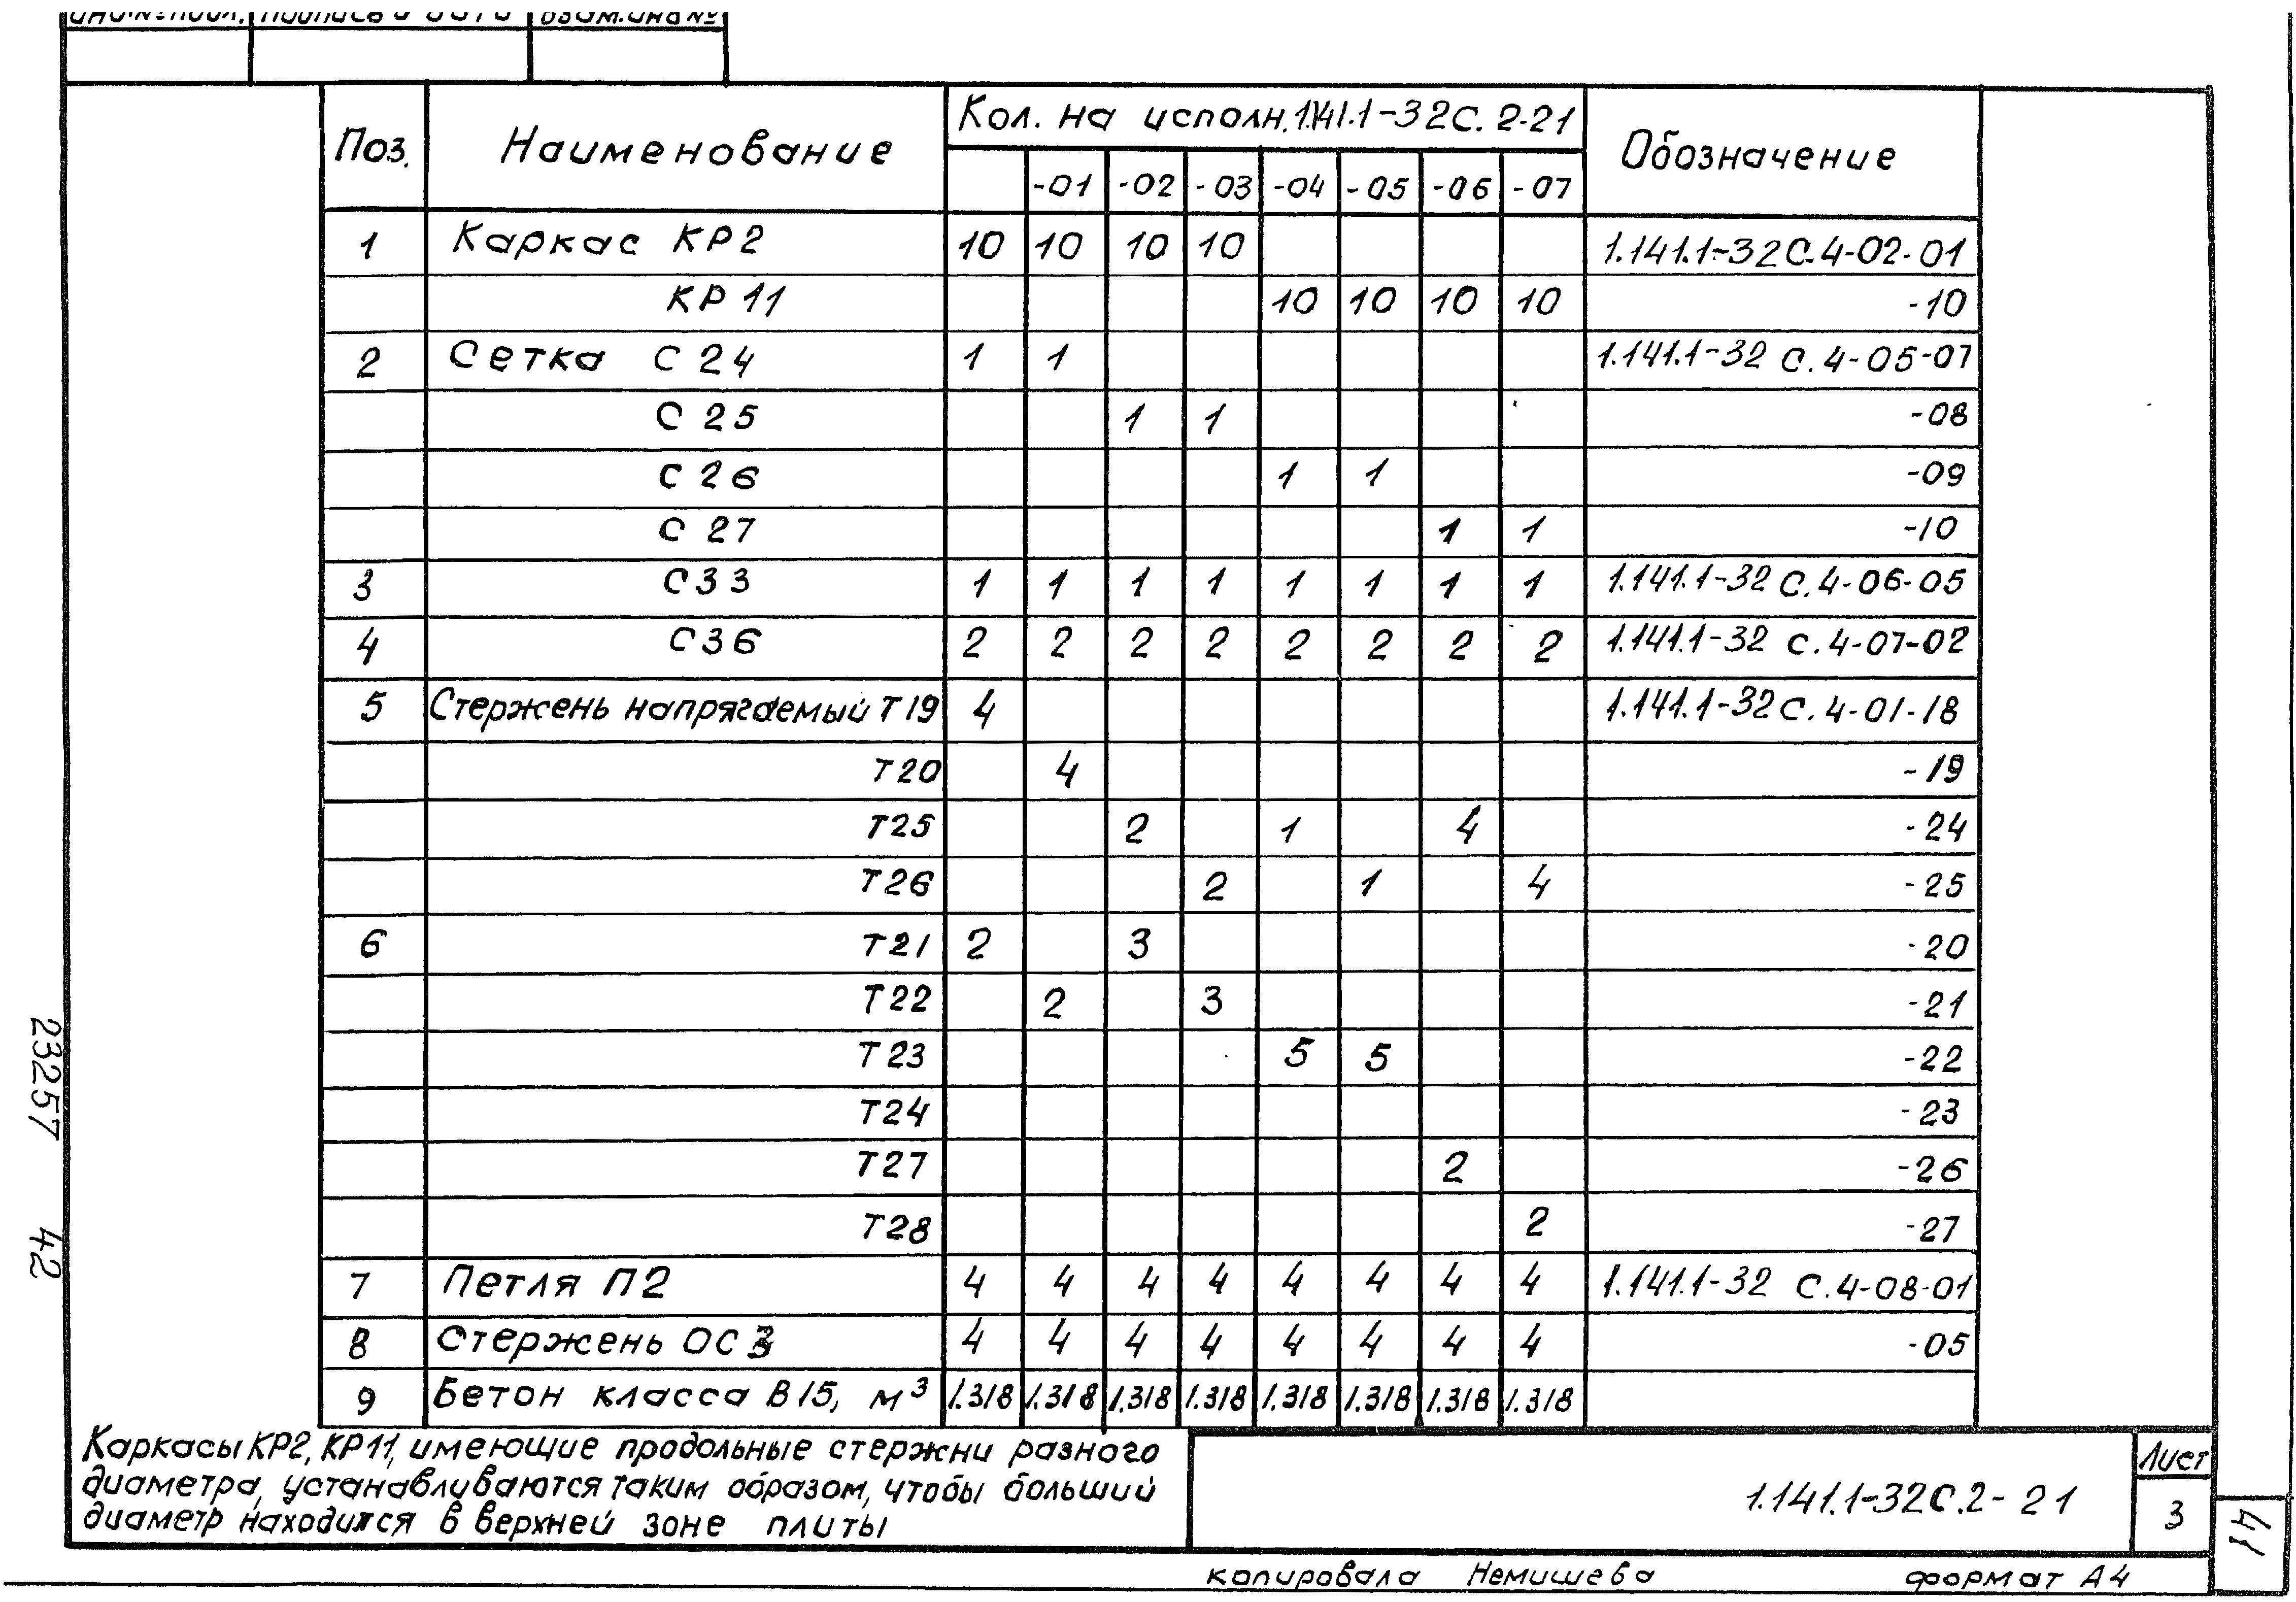 Инв.№ подл. Подпись и дата Взам.инв№
Поз. Наименование Кол. на исполн. 1.141.1-32С. 2-21 Обозначение
-01 -02 -03 -04 -05 -06 -07
1 Каркас КР2 10 10 10 10 1.141.1-32С.4-02-01
КР11 10 10 10 10 -10
2 Сетка С 24 1 1 1.141.1-32 С.4-05-07
С 25 1 1 -08
С 26 1 1 -09
С 27 1 1 -10
3 С33 1 1 1 1 1 1 1 1 1.141.1-32 С.4-06-05
4 С36 2 2 2 2 2 2 2 2 1.141.1-32 С.4-07-02
5 Стержень напрягаемый Т19 4 1.141.1-32С.4-01-18
Т20 4 -19
Т25 2 1 4 -24
Т26 2 1 4 -25
6 Т21 2 3 -20
Т22 2 3 -21
Т23 5 5 -22
Т24 -23
Т27 2 -26
Т28 2 -27
7 Петля П2 4 4 4 4 4 4 4 4 1.141.1-32 С.4-08-01
8 Стержень ОС3 4 4 4 4 4 4 4 4 -05
9 Бетон класса В15, м³ 1.318 1.318 1.318 1.318 1.318 1.318 1.318 1.318
Каркасы КР2, КР11, имеющие продольные стержни разного
диаметра, устанавливаются таким образом, чтобы больший
диаметр находится в верхней зоне плиты
1.141.1-32С.2-21
Лист
3
41
23257 42
копировала Немишева формат А4